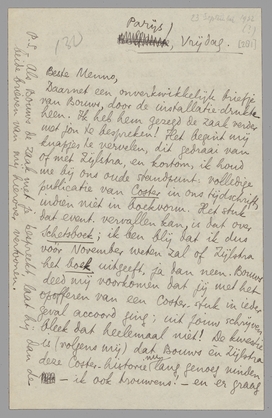 Parijs,
Vrijdag.
Beste Menno,
Daarnet een onverkwikkelijk briefje
van Bouws, door de installatie-drukte
heen. Ik heb hem gezegd de zaak verder
met jou te bespreken! Het begint mij
knapjes te vervelen, dit gedraai van
of met Zijlstra, en kortom, ik houd
me bij ons oude standpunt: volledige
publicatie van Coster in ons tijdschrift,
indien niet in boekvorm. Het stuk
dat event. vervallen kan, is dat over
Schetsboek; ik ben blij dat ik dus
vóór November weten zal of Zijlstra
het boek uitgeeft, ja dan neen. Bouws
deed mij voorkomen dat jij met het
opofferen van een Coster-stuk in ieder
geval accoord ging; uit jouw schrijven
bleek dat heelemaal niet! De kwestie
is (volgens mij) dat Bouws èn Zijlstra
deze Coster-historie lang genoeg vinden
— ik ook trouwens! — en er graag
P.S. Als Bouws de zaak met je bespreekt, laat hij dan de
brieven van mij hierover vertoonen.